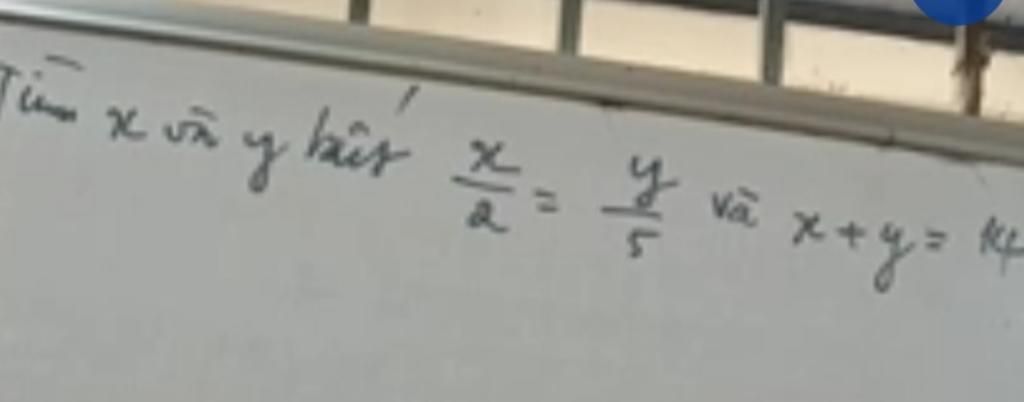 Tìm x và y biết x/2 = y/5 và x + y = 14